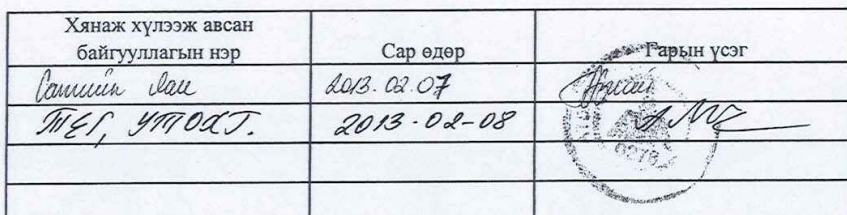 Хянаж хүлээж авсан
байгууллагын нэр
Сар өдөр
Гарын үсэг
Сангийн яам
2013.02.07
ТЕГ, УТОХГ.
2013-02-08
0278